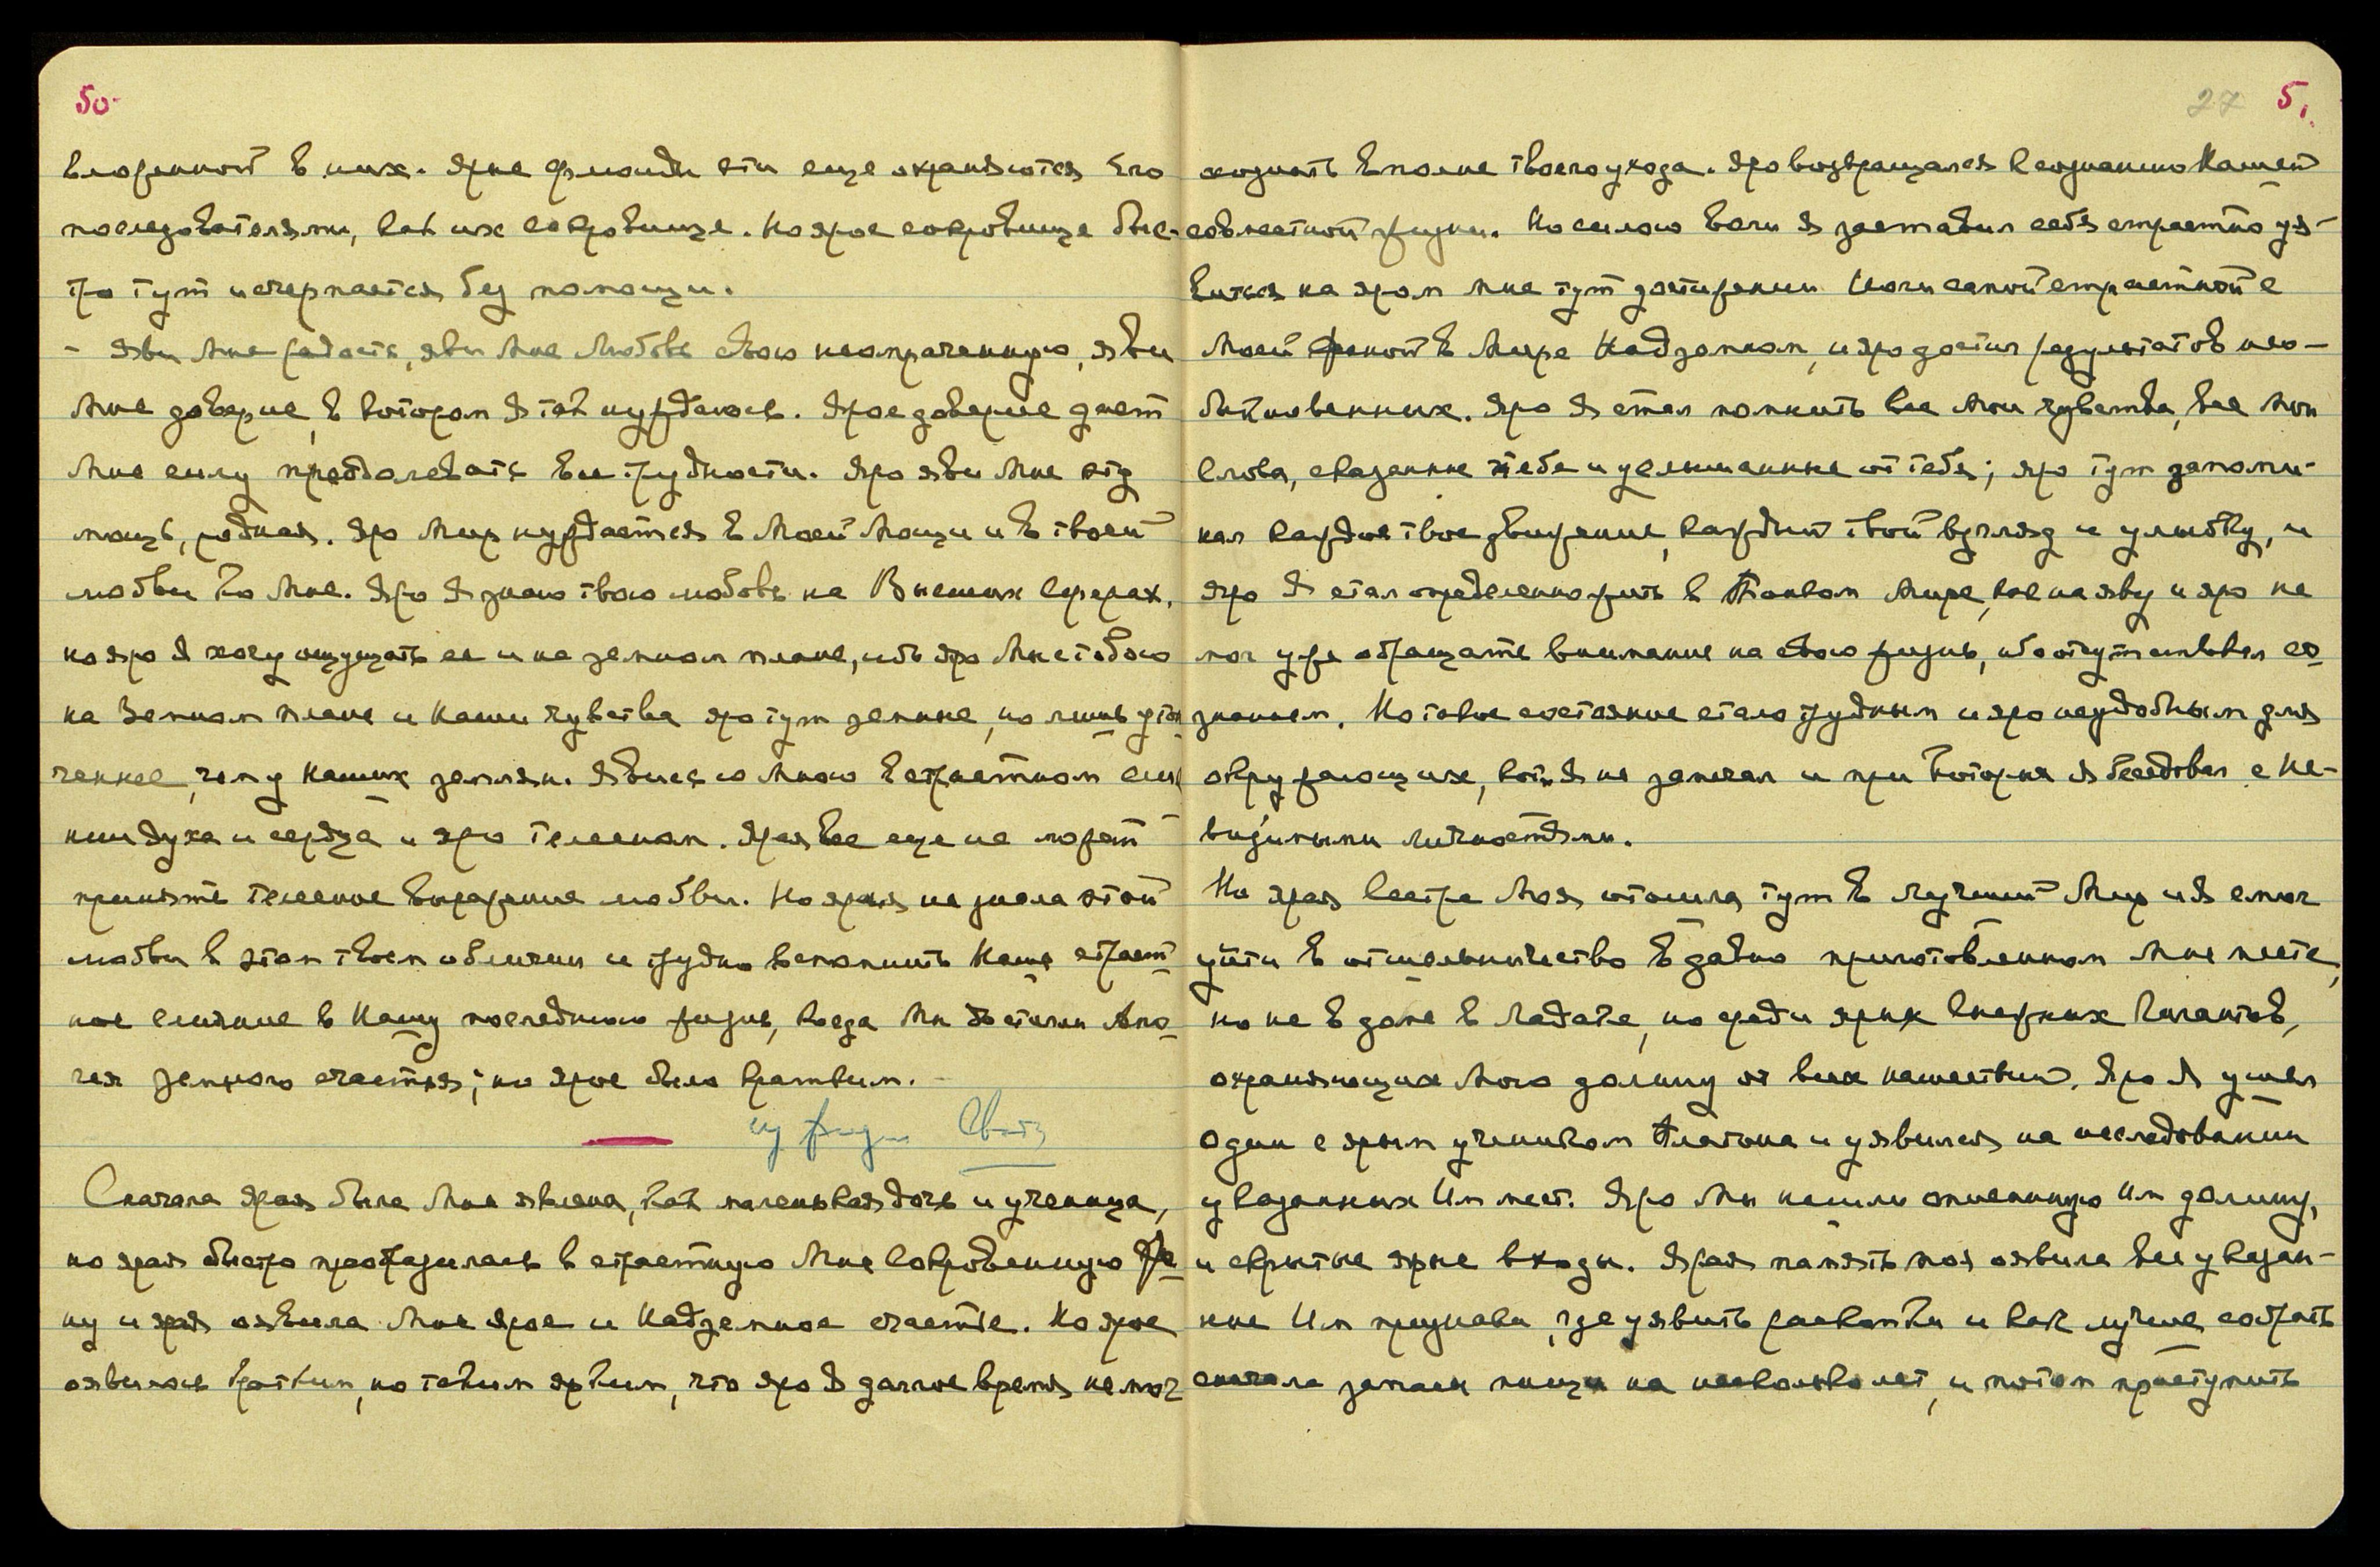 50
вложенной в них. Ярые флюиды эти еще охраняются Его
последователями, как их сокровище. Но ярое сокровище быс-
тро тут исчерпается без помощи.
- Яви Мне радость, яви Мне Любовь свою неомраченную, яви
Мне доверие, в котором Я так нуждаюсь. Ярое доверие дает
Мне силу преодолевать все трудности. Яро яви Мне эту
мощь, родная. Яро Мир нуждается в Моей Мощи и в твоей
любви ко Мне. Яро Я знаю твою любовь на Высших сферах,
но яро Я хочу ощущать ее и на земном плане, ибо яро Мы с тобою
на Земном плане и Наши чувства яро тут земные, но лишь утон
ченнее, чем у Наших землян. Явись со Мною в страстном слия
нии духа и сердца и яро телесном. Ярая все еще не может
принять телесное выражение любви. Но ярая не знала этой
любви в этом твоем обличии и трудно вспомнить Наше страст
ное слияние в Нашу последнюю жизнь, когда Мы достигли Апо
гея земного счастья; но ярое было кратким.
из жизни Свати
Сначала Ярая была Мне явлена, как маленькая дочь и ученица,
но ярая быстро преобразилась в страстную Мне Сокровенную Же
ну и ярая оявила Мне Ярое и Надземное счастье. Но Ярое
оявилось кратким, но таким ярким, что яро Я долгое время не мог
27 51
осознать вполне твоего ухода. Яро возвращался к сознанию Нашей
совместной жизни. Но силою воли Я заставил себя страстно уя-
виться на яром Мне тут достижении Йоги самой страстной с
Моей Женой в Мире Надземном, и яро достиг результатов нео-
быкновенных. Яро Я стал помнить все Мои чувства, все Мои
слова, сказанные тебе и услышанные от тебя; яро тут запоми-
нал каждое твое движение, каждый твой взгляд и улыбку, и
яро Я стал определенно жить в Тонком Мире, как наяву и яро не
мог уже обращать внимание на свою жизнь, ибо отсутствовал со
знанием. Но такое состояние стало трудным и яро неудобным для
окружающих, кот. Я не замечал и при которых Я беседовал с Не-
видимыми личностями.
Но ярая сестра Моя отошла тут в лучший Мир и Я смог
уйти в отшельничество в давно приготовленном Мне месте,
но не в доме в Ладаке, но среди ярых снежных Гигантов,
охраняющих Мою долину от всех нашествий. Яро Я ушел
один с ярым учеником Платона и уявился на исследовании
указанных Им мест. Яро Мы нашли описанную Им долину,
и скрытые ярые входы. Ярая память моя оявила все указан-
ные Им признаки, где уявить раскопки и как лучше собрать
сначала запасы пищи на несколько лет, и потом приступить